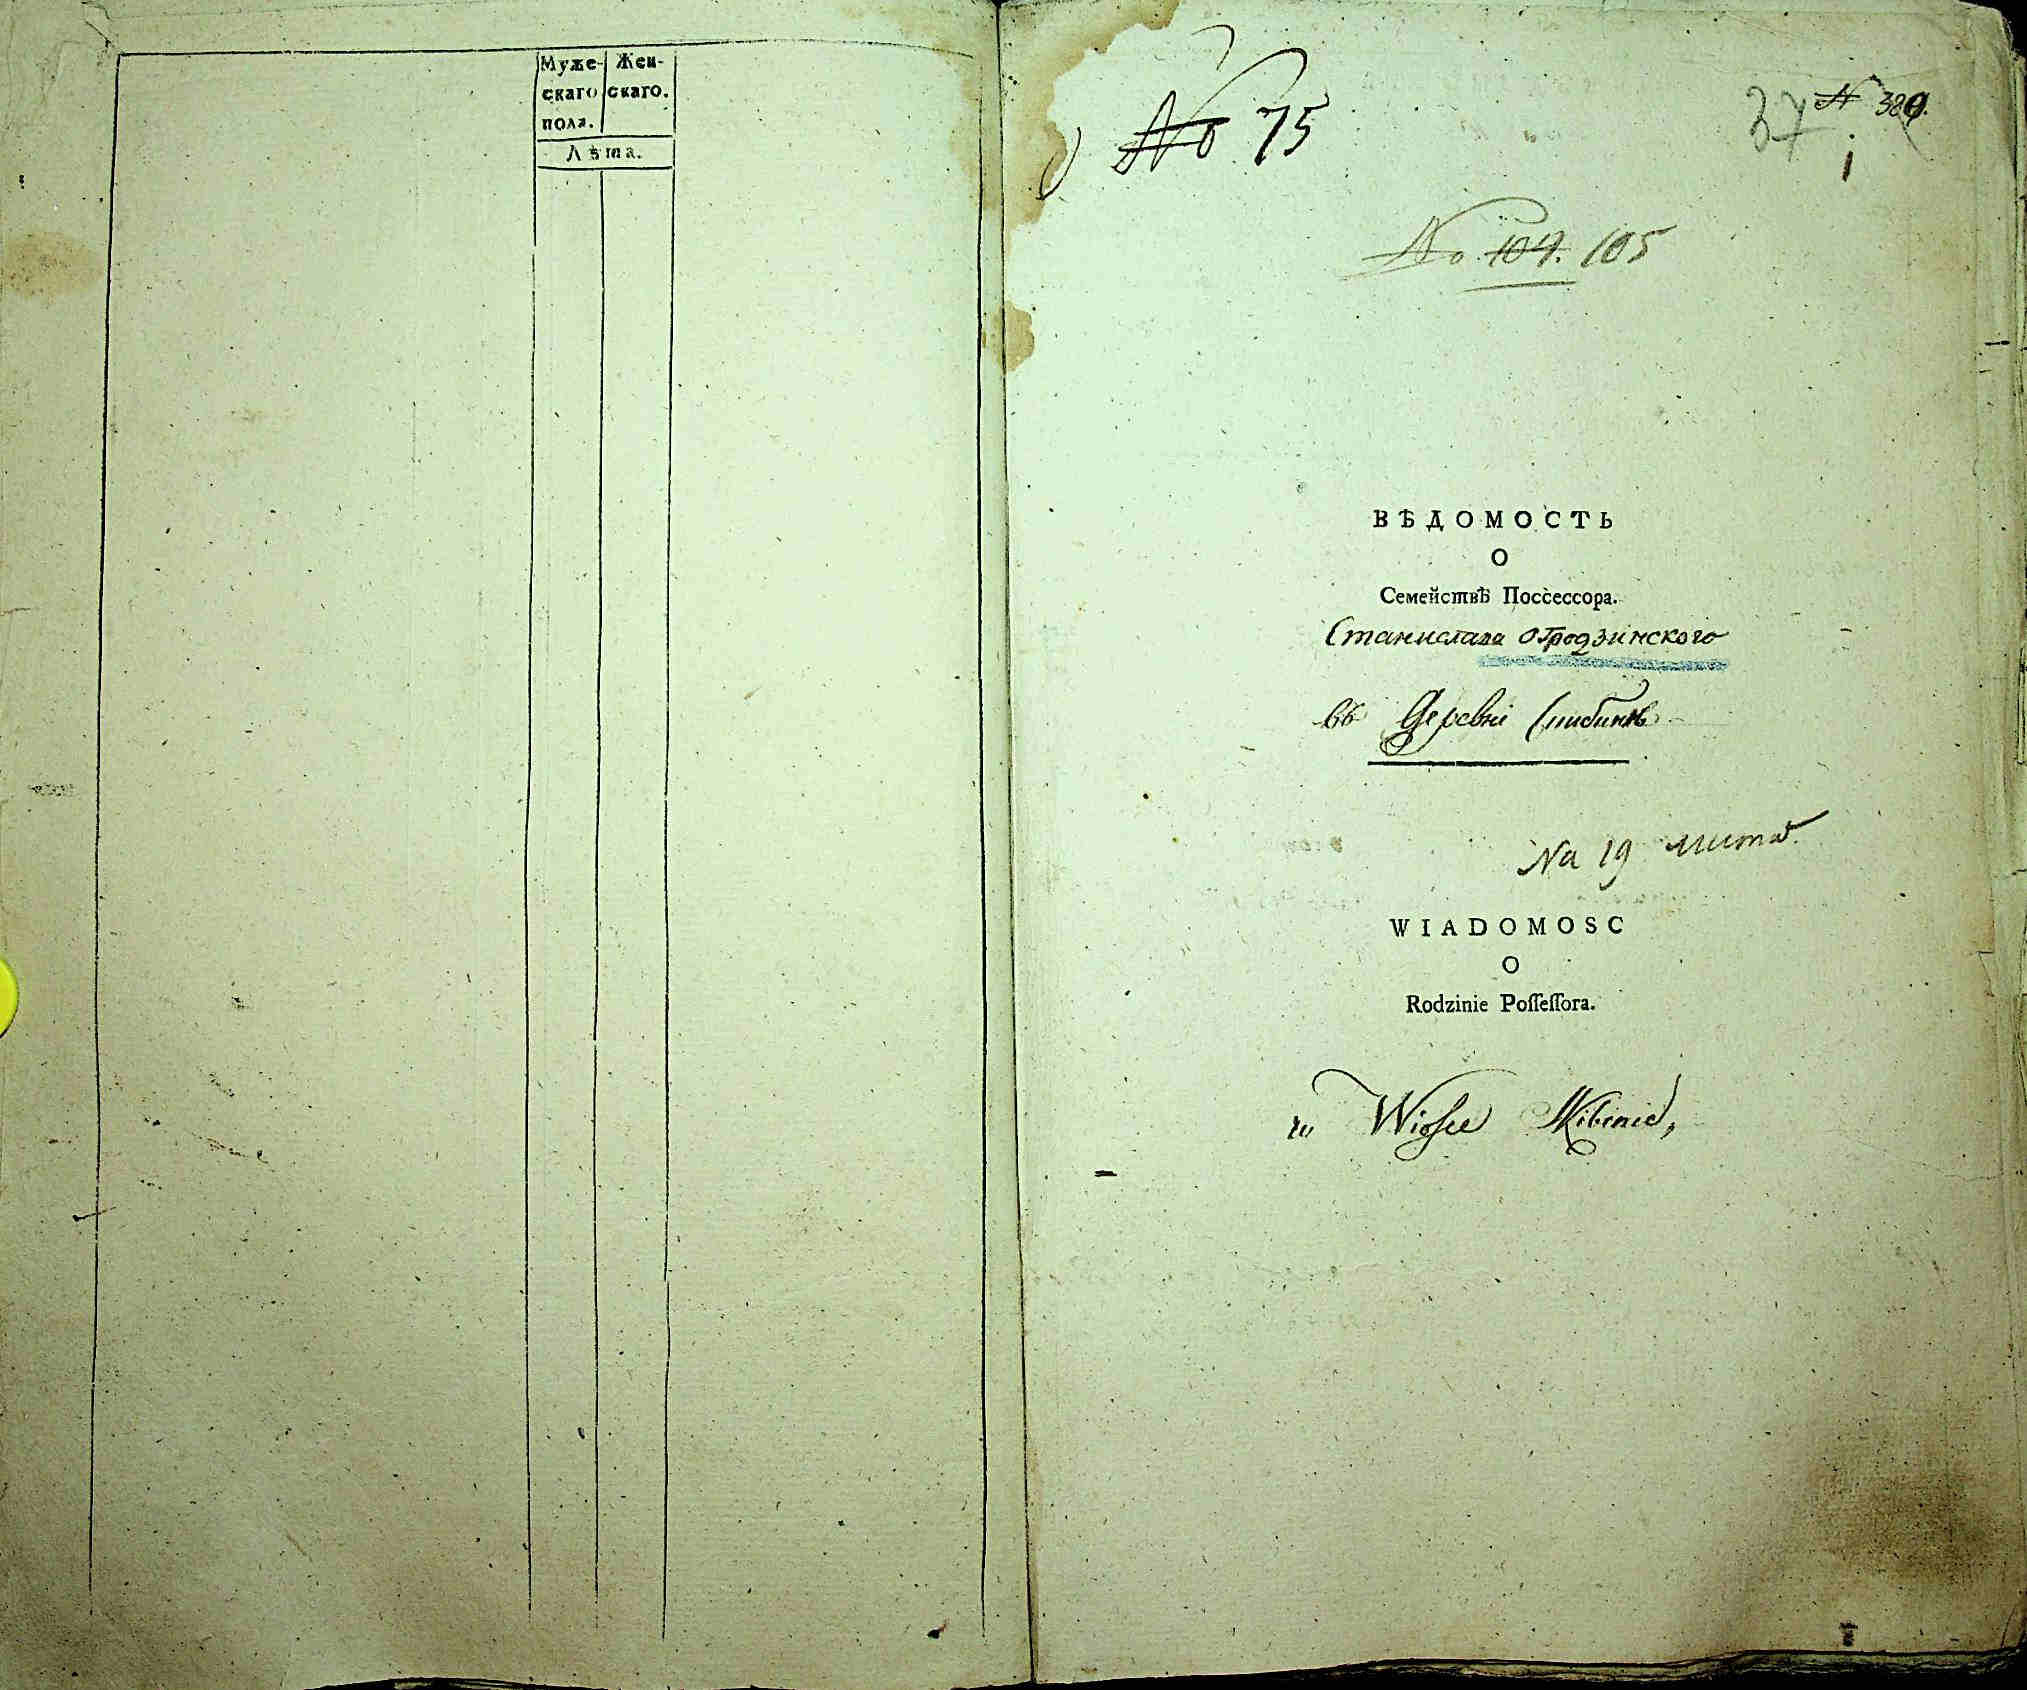 Муже- Жен-
скаго скаго.
пола.
Лѣта.
No 75
37 N 389.
1
No 104. 105
ВѢДОМОСТЬ
О
Семействѣ Поссессора.
Станислава Огродзинского
въ Деревнi
На 19 листа
WIADOMOSC
O
Rodzinie Poſſeſſora.
w Wiosce Skibinie,